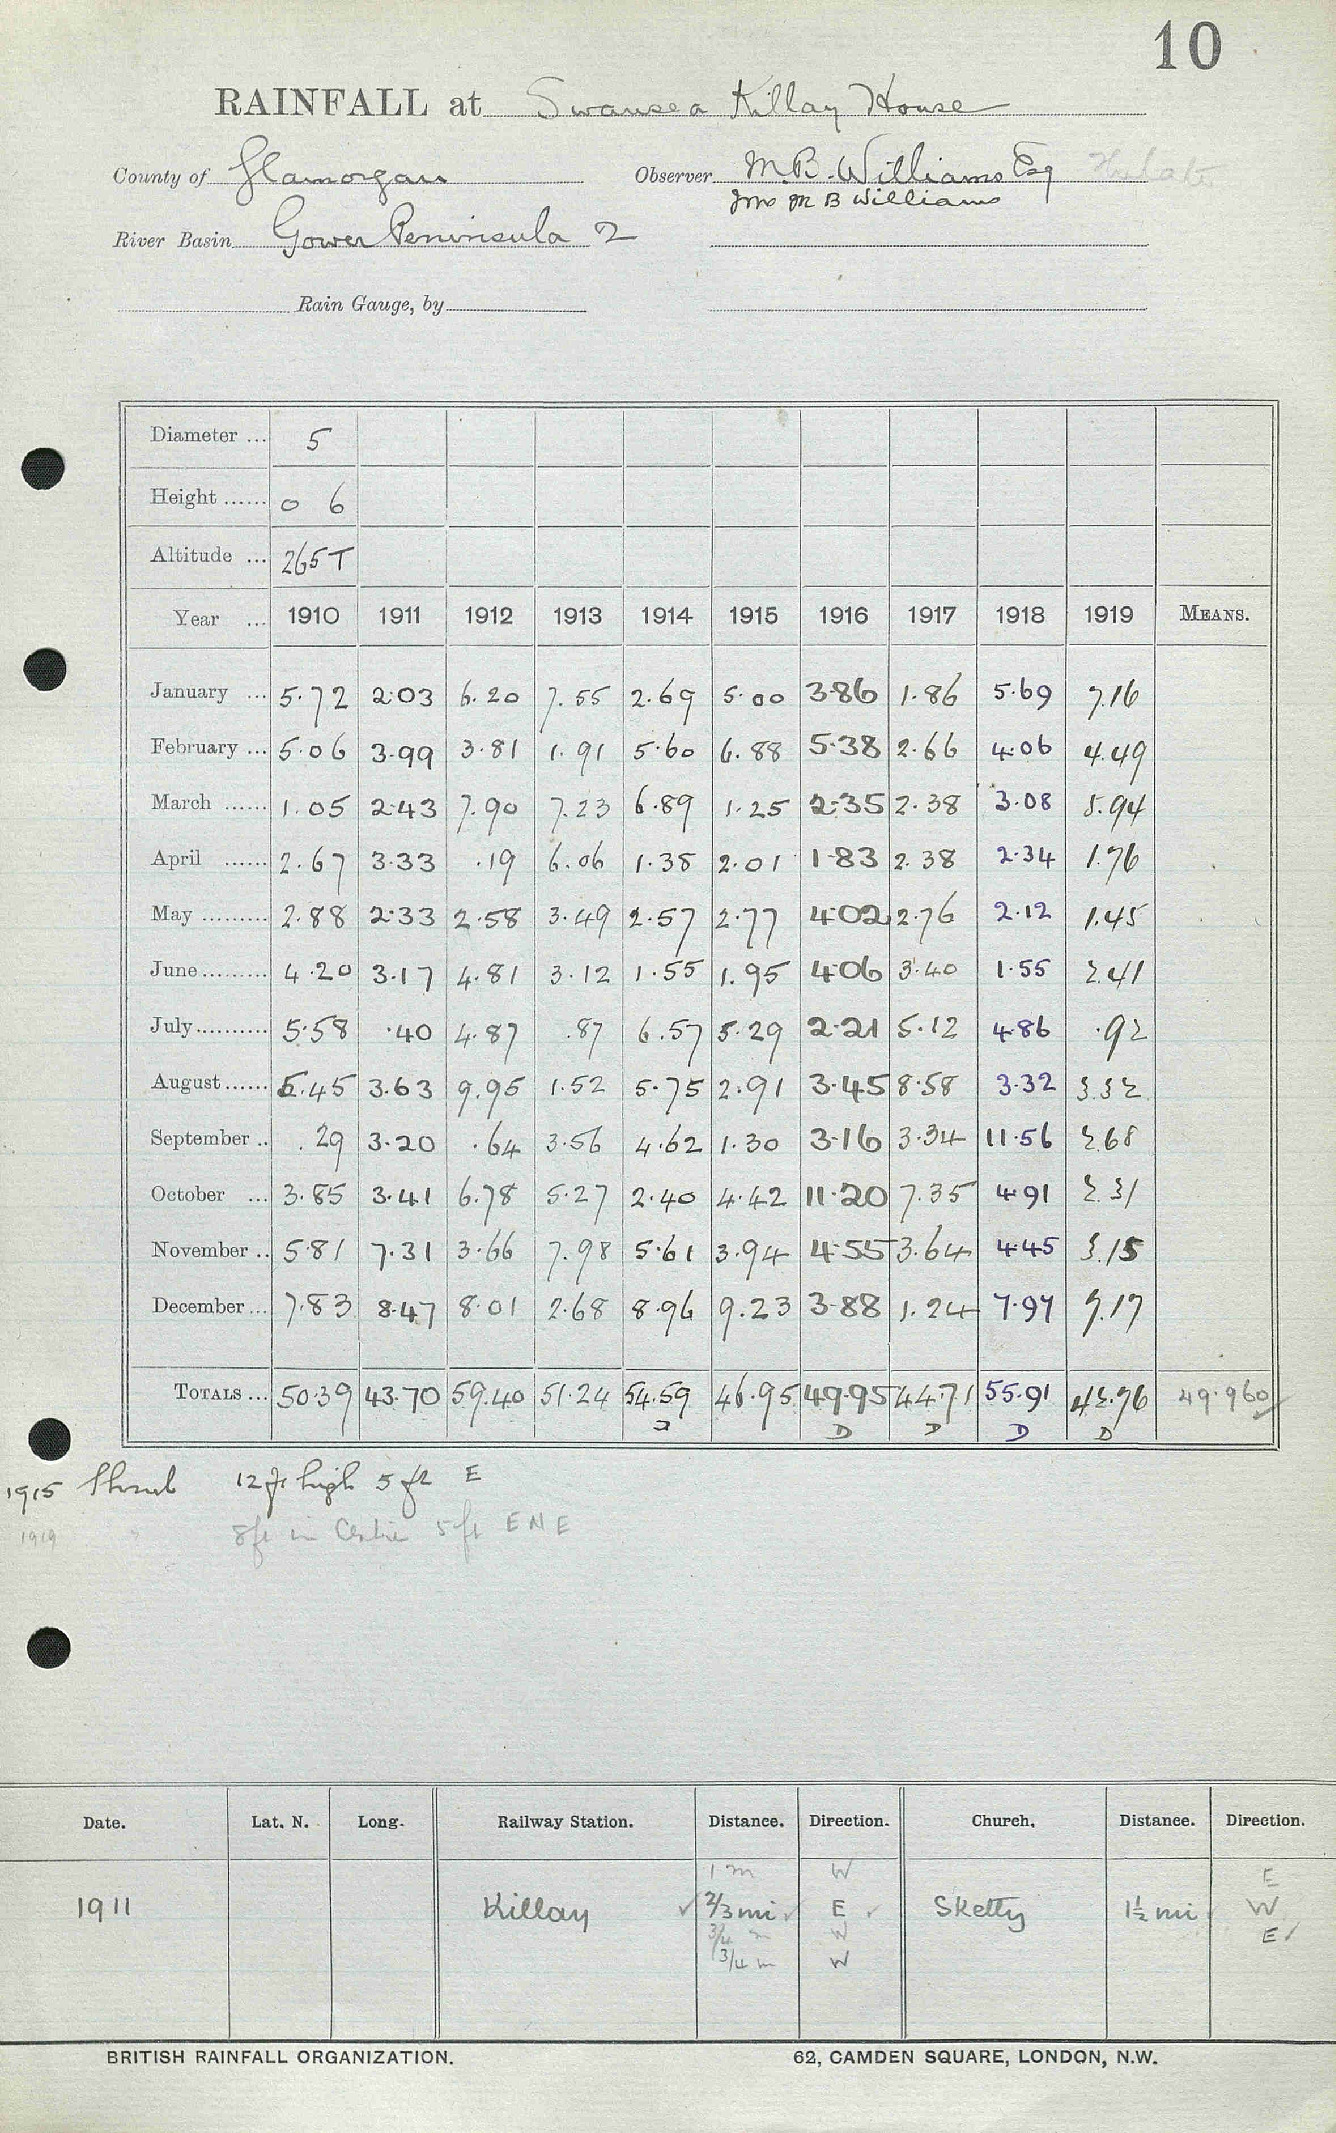 10
RAINFALL at Swansea Killay House
County of Glamorgan Observer M.B. Williams Esq
Mrs M B Williams
River Basin Gower Peninsula 2
Rain Gauge, by
Diameter ... 5
Height ...... 0 6
Altitude ... 265T
Year ... 1910 1911 1912 1913 1914 1915 1916 1917 1918 1919 MEANS.
January ... 5.72 2.03 6.20 7.55 2.69 5.00 3.86 1.86 5.69 7.16
February ... 5.06 3.99 3.81 1.91 5.60 6.88 5.38 2.66 4.06 4.49
March ...... 1.05 2.43 7.90 7.23 6.89 1.25 2.35 2.38 3.08 5.94
April ...... 2.67 3.33 .19 6.06 1.38 2.01 1.83 2.38 2.34 1.76
May ......... 2.88 2.33 2.58 3.49 2.57 2.77 4.02 2.76 2.12 1.45
June ......... 4.20 3.17 4.81 3.12 1.55 1.95 4.06 3.40 1.55 2.41
July .......... 5.58 .40 4.87 .87 6.57 5.29 2.21 5.12 4.86 .92
August ...... 5.45 3.63 9.95 1.52 5.75 2.91 3.45 8.58 3.32 3.32
September .. .29 3.20 .64 3.56 4.62 1.30 3.16 3.34 11.56 2.68
October ... 3.85 3.41 6.78 5.27 2.40 4.42 11.20 7.35 4.91 2.31
November .. 5.81 7.31 3.66 7.98 5.61 3.94 4.55 3.64 4.45 3.15
December ... 7.83 8.47 8.01 2.68 8.96 9.23 3.88 1.24 7.97 7.17
TOTALS ... 50.39 43.70 59.40 51.24 54.59 46.95 49.95 44.71 55.91 42.76 49.960
D D D D D
1915 Shrub 12 ft high 5 ft E
1919 " 8ft in Centre 5 ft E N E
Date. Lat. N. Long. Railway Station. Distance. Direction. Church. Distance. Direction.
1 m W E
1911 Killay ✓ 2/3 mi ✓ E ✓ Sketty 1½ mi ✓ W
3/4 m W E ✓
3/4 m W
BRITISH RAINFALL ORGANIZATION. 62, CAMDEN SQUARE, LONDON, N.W.